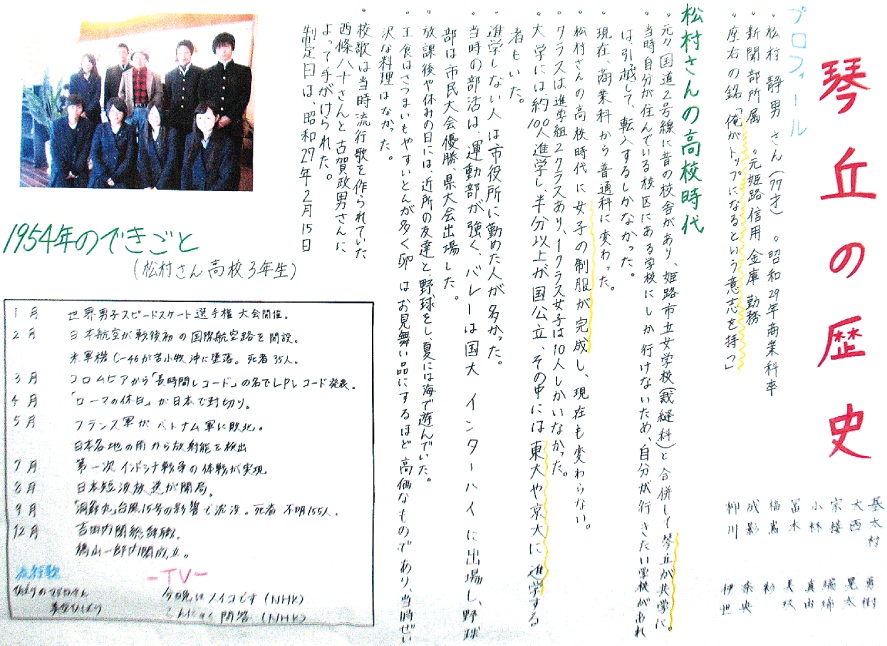 琴丘の歴史
プロフィール
・松村 静男 さん(77才) ・昭和29年商業科卒
・新聞部所属 ・元姫路信用金庫勤務
・座右の銘「俺がトップになるという意志を持つ」
松村さんの高校時代
・元々国道2号線に昔の校舎があり、姫路市立女学校(裁縫科)と合併して琴丘が共学に。
・当時自分が住んでいる校区にある学校にしか行けないため、自分が行きたい学校があれ
ば引越して、転入するしかなかった。
・現在、商業科から普通科に変わった。
・松村さんの高校時代に女子の制服が完成し、現在も変わらない。
・クラスは進学組2クラスあり、1クラス女子は10人しかいなかった。
・大学には約100人進学し、半分以上が国公立、その中には東大や京大に進学する
者もいた。
・進学しない人は市役所に勤めた人が多かった。
・当時の部活は、運動部が強く、バレーは国大 インターハイに出場し、野球
部は市民大会優勝、県大会出場した。
・放課後や休みの日には、近所の友達と野球をし、夏には海で遊んでいた。
・主食はさつまいもやすいとんが多く、卵はお見舞い品にするほど高価なものであり、当時ぜい
沢な料理はなかった。
・校歌は当時流行歌を作られていた
西條八十さんと古賀政男さんに
よって手がけられた。
制定日は、昭和29年2月15日
1954年のできごと
(松村さん高校3年生)
1月 世界男子スピードスケート選手権大会開催。
2月 日本航空が戦後初の国際航空路を開設。
米軍機C-46が苫小牧沖に墜落。死者35人。
3月 コロムビアから「長時間レコード」の名でLPレコード発表。
4月 「ローマの休日」が日本で封切り。
5月 フランス軍がベトナム軍に敗北。
日本各地の雨から放射能を検出
7月 第一次インドシナ戦争の休戦が実現
8月 日本短波放送が開局。
9月 「洞爺丸」台風15号の影響で沈没。死者 不明1155人。
12月 吉田内閣総辞職。
鳩山一郎内閣成立。
流行歌
ひばりのマドロスさん
美空ひばり
-TV-
今晩はメイコです(NHK)
こんにゃく問答(NHK)